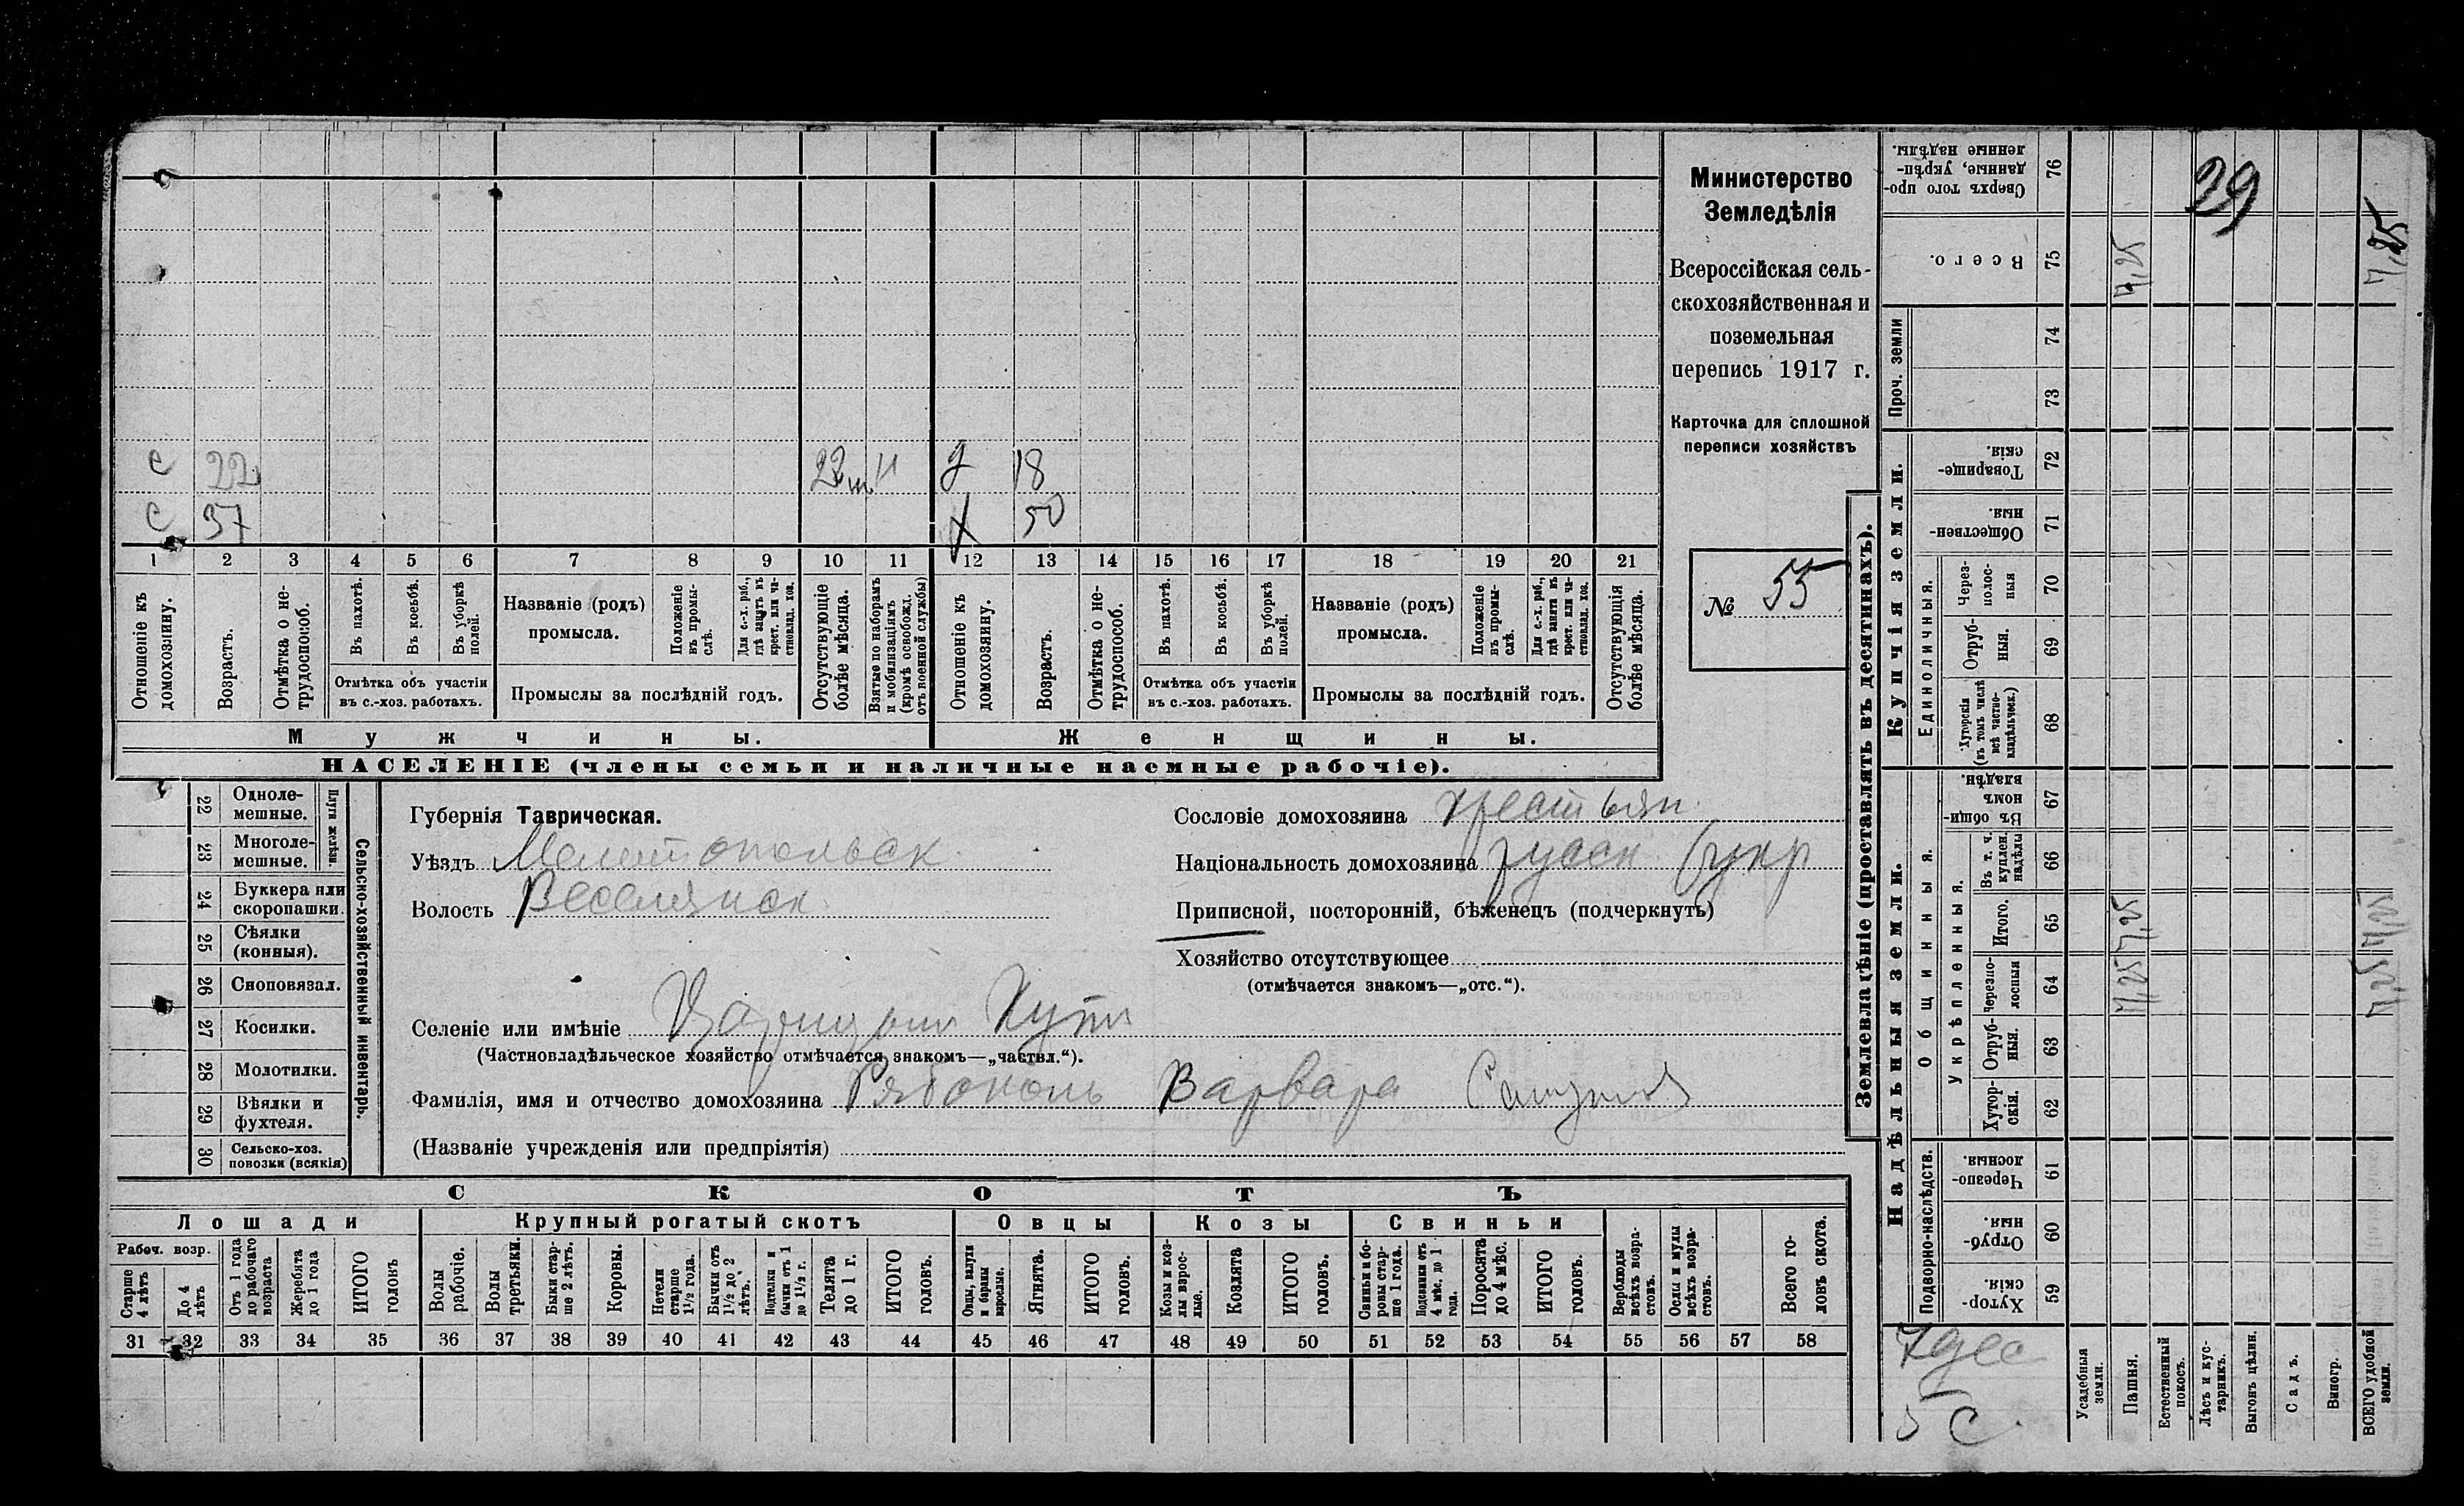 с 22 22 м д 18
с 37 х 50
1 2 3 4 5 6 7 8 9 10 11 12 13 14 15 16 17 18 19 20 21
Отношеніе къ домохозяину.
Возрастъ.
Отмѣтка о не-
трудоспособ.
Въ пахотѣ.
Въ косьбѣ.
Въ уборкѣ полей.
Отмѣтка объ участіи
въ с.-хоз. работахъ.
Названіе (родъ)
промысла.
Положеніе въ промы-
слѣ.
Для с.-х. раб.,
гдѣ занятъ въ
крест. или ча-
стновлад. хоз.
Промыслы за послѣдній годъ.
Отсутствующіе
болѣе мѣсяца.
Взятые по наборамъ
и мобилизаціямъ
(кромѣ освобожд.
отъ военной службы)
Отношеніе къ домохозяину.
Возрастъ.
Отмѣтка о не-
трудоспособ.
Въ пахотѣ.
Въ косьбѣ.
Въ уборкѣ полей.
Отмѣтка объ участіи
въ с.-хоз. работахъ.
Названіе (родъ)
промысла.
Положеніе въ промы-
слѣ.
Для с.-х. раб.,
гдѣ занята въ
крест. или ча-
стновлад. хоз.
Промыслы за послѣдній годъ.
Отсутствующія
болѣе мѣсяца.
Мужчины.
Женщины.
НАСЕЛЕНІЕ (члены семьи и наличные наемные рабочіе).
Министерство
Земледѣлія
Всероссійская сель-
скохозяйственная и
поземельная
перепись 1917 г.
Карточка для сплошной
переписи хозяйствъ
№ 55
22 Одноле-
мешные.
23 Многоле-
мешные.
Плуги желѣзн.
24 Буккера или
скоропашки.
25 Сѣялки
(конныя).
26 Сноповязал.
27 Косилки.
28 Молотилки.
29 Вѣялки и
фухтеля.
30 Сельско-хоз.
повозки (всякія)
Сельско-хозяйственный инвентарь.
Губернія Таврическая.
Уѣздъ Мелитопольск
Волость Веселянск
Сословіе домохозяина крестьян.
Національность домохозяина русск (укр
Приписной, посторонній, бѣженецъ (подчеркнуть)
Хозяйство отсутствующее
(отмѣчается знакомъ—„отс.“).
Селеніе или имѣніе Царицын Кутъ
(Частновладѣльческое хозяйство отмѣчается знакомъ—„частвл.“).
Фамилія, имя и отчество домохозяина Рябоконь Варвара
(Названіе учрежденія или предпріятія)
СКОТЪ
Лошади Крупный рогатый скотъ Овцы Козы Свиньи
Рабоч. возр.
Старше
4 лѣтъ
До 4
лѣтъ
Отъ 1 года
до рабочаго
возраста
Жеребята
до 1 года
ИТОГО
головъ
Волы
рабочіе.
Волы
третьяки.
Быки стар-
ше 2 лѣтъ.
Коровы.
Нетели
старше
1½ года.
Бычки отъ
1½ до 2
лѣтъ.
Подтелки и
бычки отъ 1
до 1½ г.
Телята
до 1 г.
ИТОГО
головъ.
Овцы, валухи
и бараны
взрослые.
Ягнята.
ИТОГО
головъ.
Козы и коз-
лы взрос-
лые.
Козлята
ИТОГО
головъ.
Свиньи и бо-
ровы стар-
ше 1 года.
Подсвинки отъ
4 мѣс. до 1
года.
Поросята
до 4 мѣс.
ИТОГО
головъ.
Верблюды
всѣхъ возра-
стовъ.
Ослы и мулы
всѣхъ возра-
стовъ.
Всего го-
ловъ скота.
31 32 33 34 35 36 37 38 39 40 41 42 43 44 45 46 47 48 49 50 51 52 53 54 55 56 57 58
Землевладѣніе (проставлять въ десятинахъ).
Купчія земли.
Надѣльныя земли.
Сверхъ того про-
данные, укрѣп-
ленные надѣлы.
76
39
Всего.
75 7,25 7,25
Проч. земли
74
73
Товарище-
скія.
72
Обществен-
ныя.
71
Единоличныя.
Через-
полос-
ныя
70
Отруб-
ныя.
69
Хуторскія
(въ томъ числѣ
всѣ частно-
владѣльческ.)
68
Общинныя.
Въ общин-
номъ
владѣн.
67
Укрѣпленныя.
Въ т. ч.
куплен.
надѣлы
66
Итого.
65 7,25 7,25
Черезпо-
лосныя
64 7,25 7,25
Отруб-
ныя.
63
Хутор-
скія.
62
Подворно-наслѣдств.
Черезпо-
лосныя.
61
Отруб-
ныя.
60
Хутор-
скія.
59
7 дес
5 с
Усадебныя
земли.
Пашня.
Естественный
покосъ.
Лѣсъ и кус-
тарникъ.
Выгонъ цѣлин.
Садъ.
Виногр.
ВСЕГО удобной
земли.